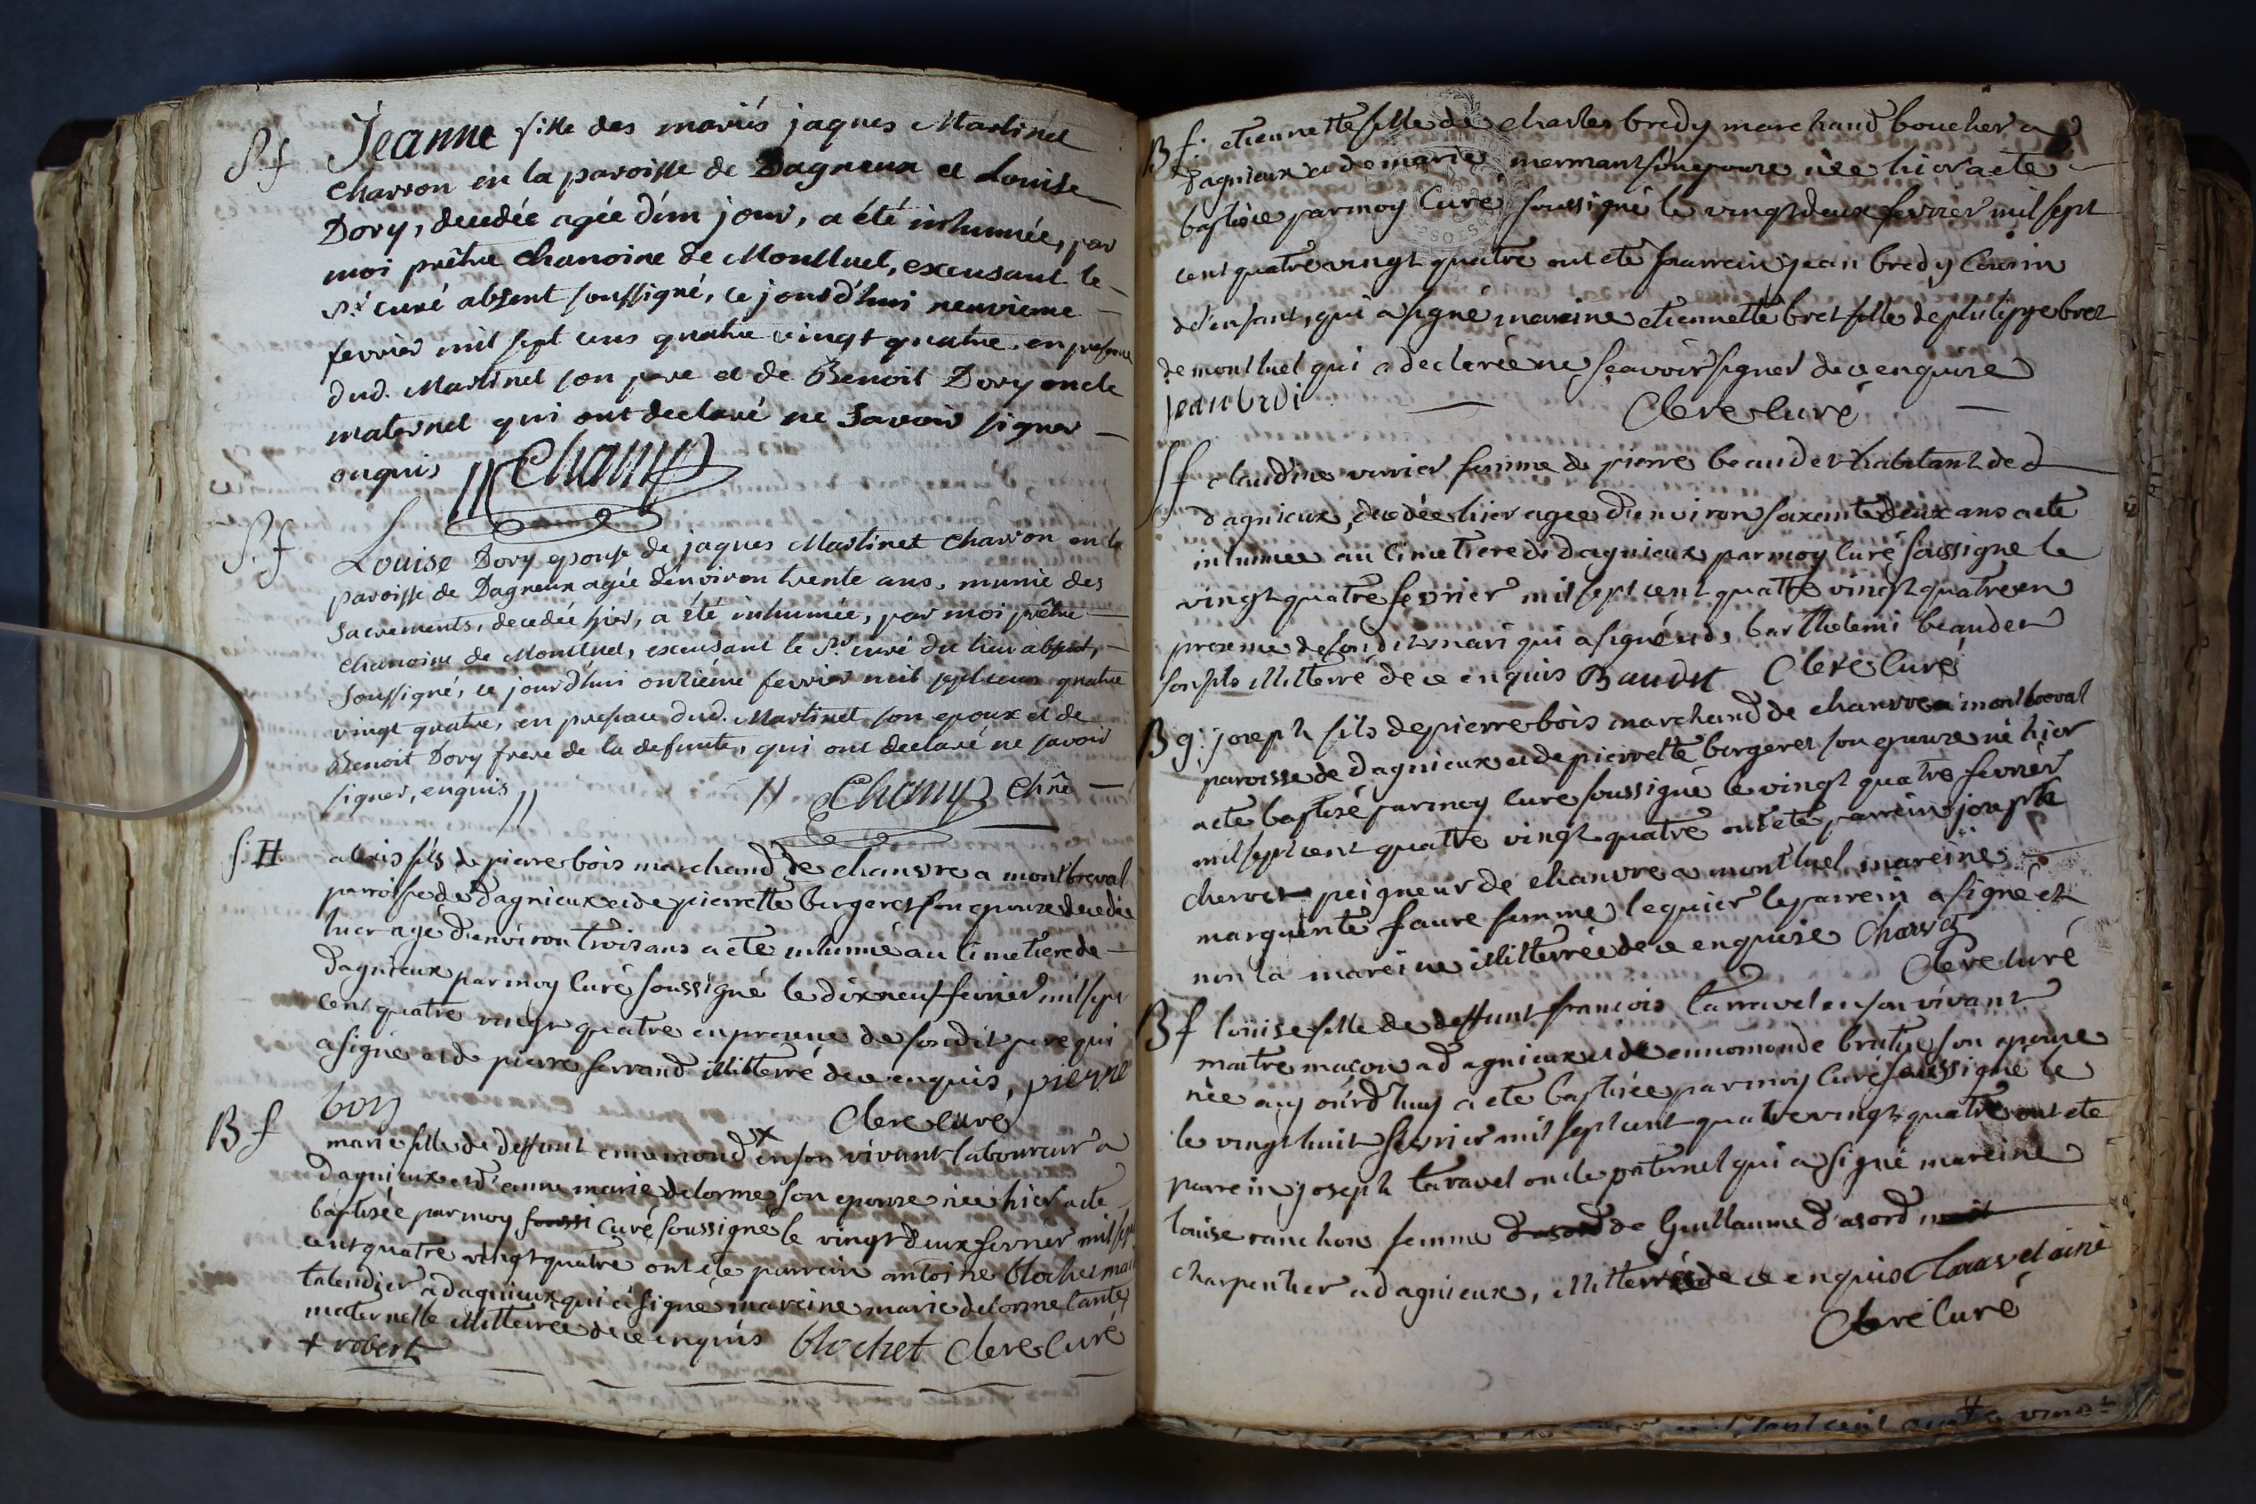 S. f
Jeanne fille des mariés jaques Martinet
charron en la paroisse de Dagneux et Louise
Dory, decedée agée d'un jour, a été inhumée, par
moi prêtre chanoine de Montluel, excusant le
Sr. curé absent soussigné, ce jourd'hui neuvieme
fevrier mil sept cens quatre vingt quatre. en presence
dud. Martinet son pere et de Benoit Dory oncle
maternel qui ont declaré ne savoir signer
enquis
S. f
Louise Dory epouse de jaques Martinet charron en la
paroisse de Dagneux agée d'environ trente ans, munie des
Sacrements, decedée hier, a été inhumée, par moi prêtre
chanoine de Montluel, excusant le Sr curé du lieu absent,
soussigné, ce jourd'hui onzieme fevrier mil sept cens quatre
vingt quatre, en presence dud. Martinet son epoux et de
Benoit Dory frere de la defunte, qui ont declaré ne savoir
signer, enquis
alexis fils de pierre bois marchand de chanvre a montbreval
parroisse de Dagnieux et de pierrette bergeret son epouze decedé
hier agé d'environ trois ans a ete inhumé au cimetiere de
Dagnieux par moy Curé soussigné le dix neuf fevrier mil sept
cent quatre vingt quatre en presence de son dit pere qui
a signé et de pierre ferrand illitterré de ce enquis, pierre
bois
Clere curé
B f
marie fille de deffunt ennemond x en son vivant laboureur a
dagnieux et d'anne marie delorme son epouze née hier a ete
baptisée par moy soussi Curé soussigné le vingt deux fevrier mil sept
cent quatre vingt quatre ont ete parrein antoine blochet
a dagnieux qui a signé mareine marie delorme tante
maternelle illitterée de ce enquis blochet Clere Curé
+ robert
B f: etiennette fille de charles bredy marchand boucher a
Dagnieux et de marie mermant son epouze née hier a ete
baptisée par moy Curé soussigné le vingt deux fevrier mil sept
cent quatre vingt quatre ont ete parrein jean bredy Cousin
de l'enfant, qui a signé mareine etiennette bret fille de philippe bret
de montluel qui a declarée ne sçavoir signer de ce enquize
jean brdi
Clere Curé
S f
claudine verrier femme de pierre beaudet habitant de d
dagnieux, decedée hier agee d'environ soixente deux ans a ete
inhumee au Cimetiere de Dagnieux par moy Curé soussigne le
vingt quatre fevrier mil sept cent quatre vingt quatre en
presence de son dit mari qui a signé et de barthelemi beaudet
son fils illitterré de ce enquis Baudet Clere Curé
B g: joseph fils de pierre bois marchand de chanvre a montbreval
paroisse de Dagnieux et de pierrette bergeret son epouze né hier
a ete baptisé par moy Cure soussigné le vingt quatre fevrier
mil sept cent quatre vingt quatre ont ete parrein joseph
chervet peigneur de chanvre a montluel mareine
marguerite faure femme lequier le parrein a signé et
non la mareine illitterrée de ce enquize
Clere Curé
B f
louise fille de deffunt francois tarravel en son vivant
maitre maçon a dagnieux et de ennemonde son epouze
née aujourd'huy a ete baptisée par moy Curé soussigné le
le vingt huit fevrier mil sept cent quatre vingt quatre ont ete
parrein joseph taravel oncle paternel qui a signé mareine
louise ranchon femme d'asord de Guillaume d'asord
charpentier a dagnieux, illitterrée de ce enquis taravel ainé
Clere Curé